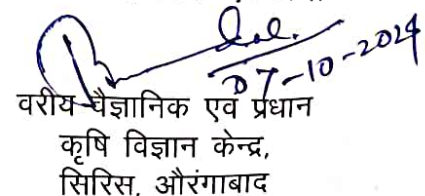 07-10-2024
वरीय वैज्ञानिक एवं प्रधान
कृषि विज्ञान केन्द्र,
सिरिस, औरंगाबाद